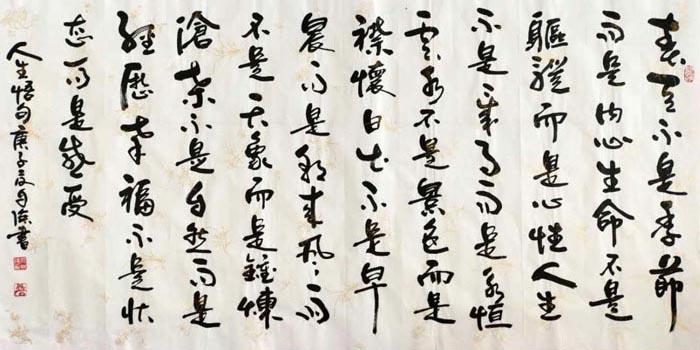 春天不是季節
而是内心生命不是
軀體而是心性人生
不是歲月而是永恒
雲水不是景色而是
襟懷日出不是早
晨而是朝氣風雨
不是天象而是錘煉
滄桑不是自然而是
經歷幸福不是狀
態而是感受
人生悟句庚子書